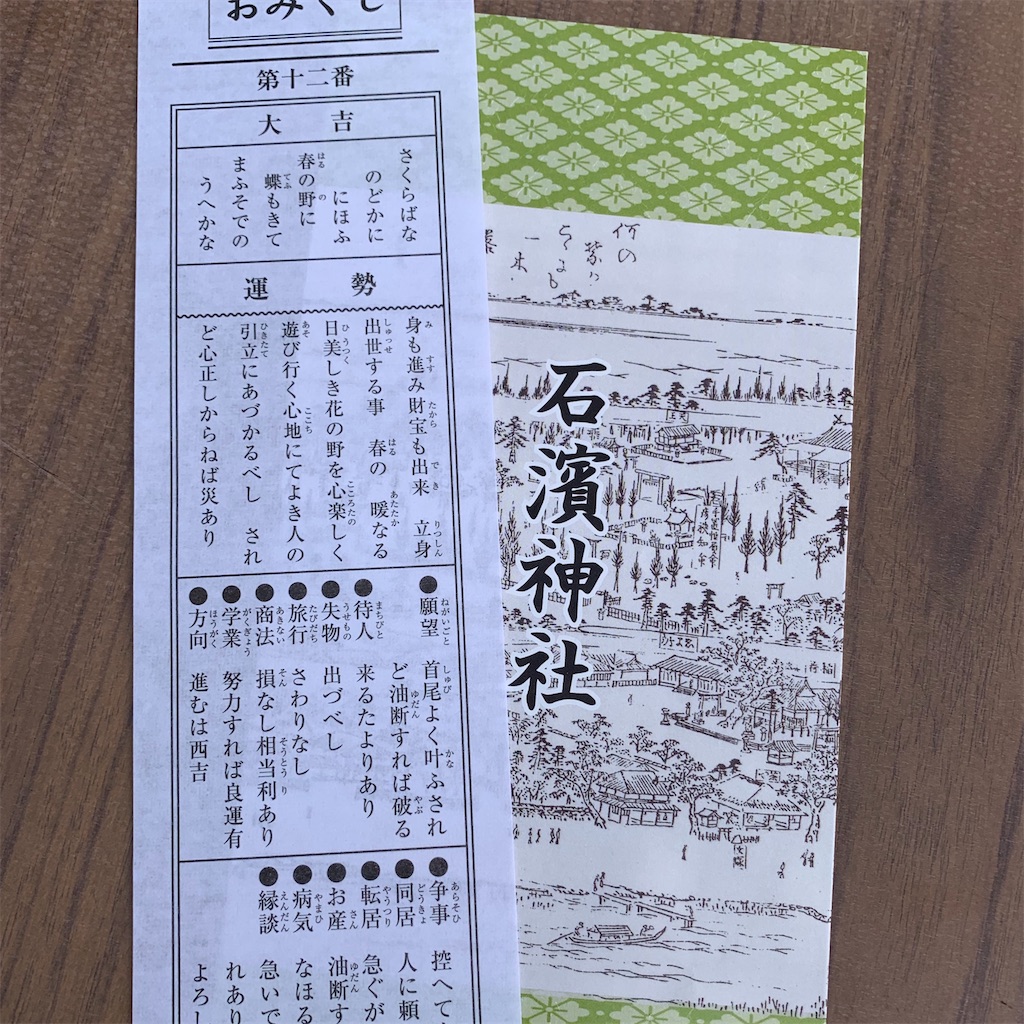 おみくじ
第十二番
大吉
さくらばな
のどかに
にほふ
春の野に
蝶もきて
まふそでの
うへかな
運勢
身も進み財宝も出来 立身
出世する事 春の 暖なる
日美しき花の野を心楽しく
遊び行く心地にてよき人の
引立にあづかるべし され
ど心正しからねば災あり
●願望 首尾よく叶ふされ
ど油断すれば破る
●待人 来るたよりあり
●失物 出づべし
●旅行 さわりなし
●商法 損なし相当利あり
●学業 努力すれば良運有
●方向 進むは西吉
●争事 控へて
●同居 人に頼
●転居 急ぐが
●お産 油断す
●病気 なほる
●縁談 急いで
れあり
よろし
石濱神社